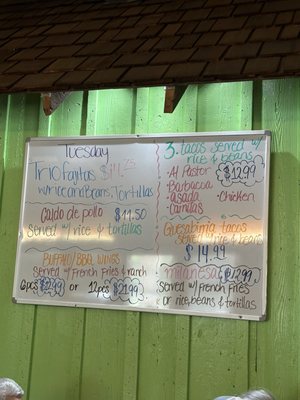 Tuesday
Trio fajitas $14.75
w/ Rice and Beans, Tortillas
Caldo de pollo $11.50
Served w/ rice & tortillas
BUFFALO/BBQ WINGS
Served w/ French Fries & ranch
6pcs $12.99 or 12pcs $21.99
3. tacos served w/
rice & beans
Al Pastor $12.99
Barbacoa
Asada · Chicken
Carnitas
Quesabirria tacos
Served w/ rice & beans
$14.99
milanesa $12.99
Served w/ French Fries
or rice, beans & tortillas